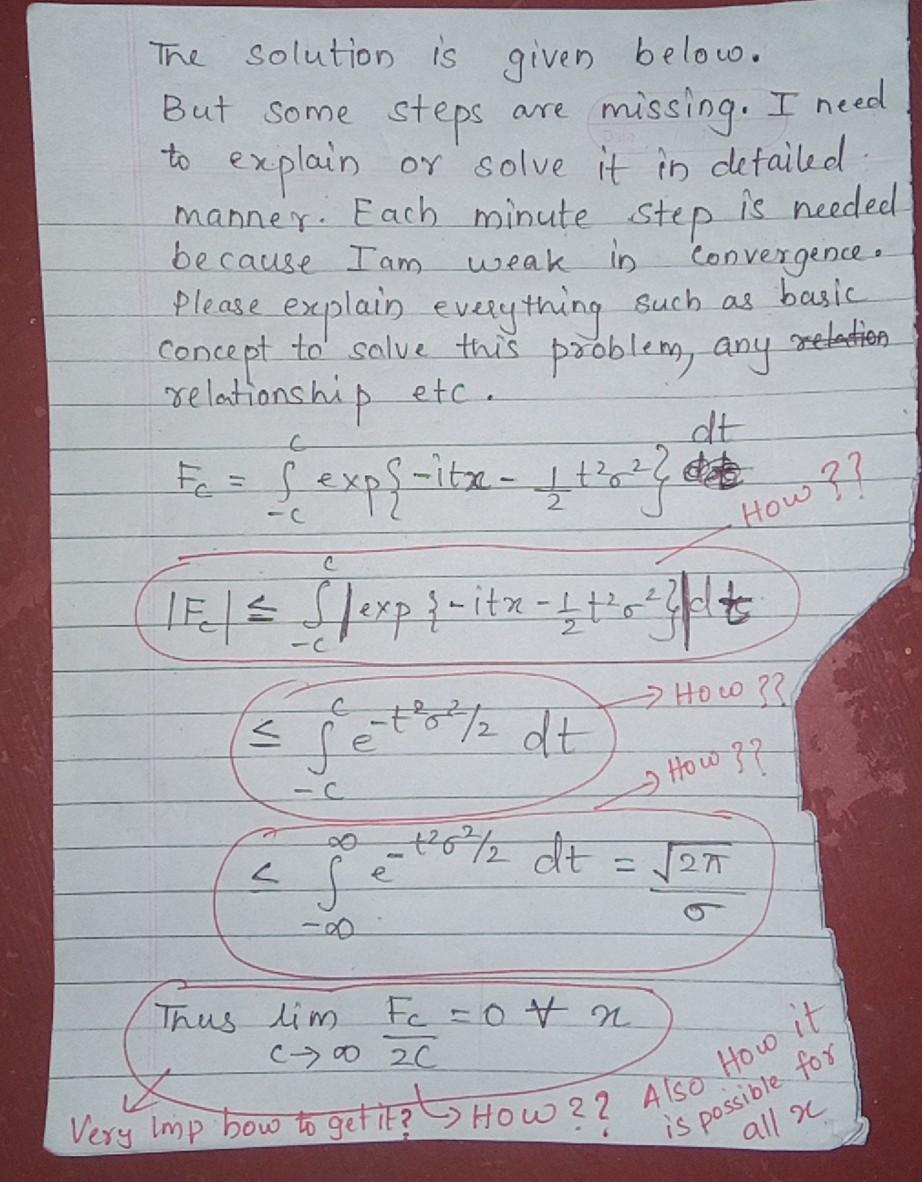 The solution is given below.
But some steps are missing. I need
to explain or solve it in detailed
manner. Each minute step is needed
because I am weak in convergence.
Please explain everything such as basic
concept to solve this problem, any relation
relationship etc.
F_c = ∫_{-c}^{c} exp{-itx - 1/2 t²σ²} dt
How??
|F_c| ≤ ∫_{-c}^{c} |exp{-itx - 1/2 t²σ²}| dt
≤ ∫_{-c}^{c} e^{-t²σ²/2} dt
How??
How??
< ∫_{-∞}^{∞} e^{-t²σ²/2} dt = √2π/σ
Thus lim_{c→∞} F_c/2C = 0 ∀ x
Very Imp how to get it? → How?? Also How it
is possible for
all x